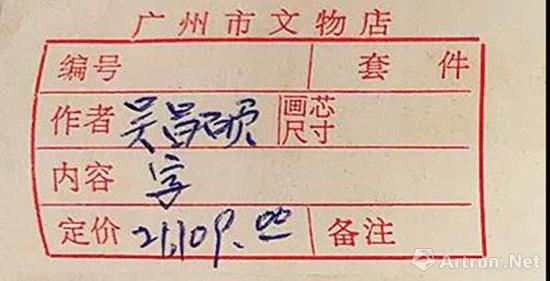 广州市文物店
编号 套件
作者 吴昌硕 画芯尺寸
内容 字
定价 21,109.00 备注
Artron.Net